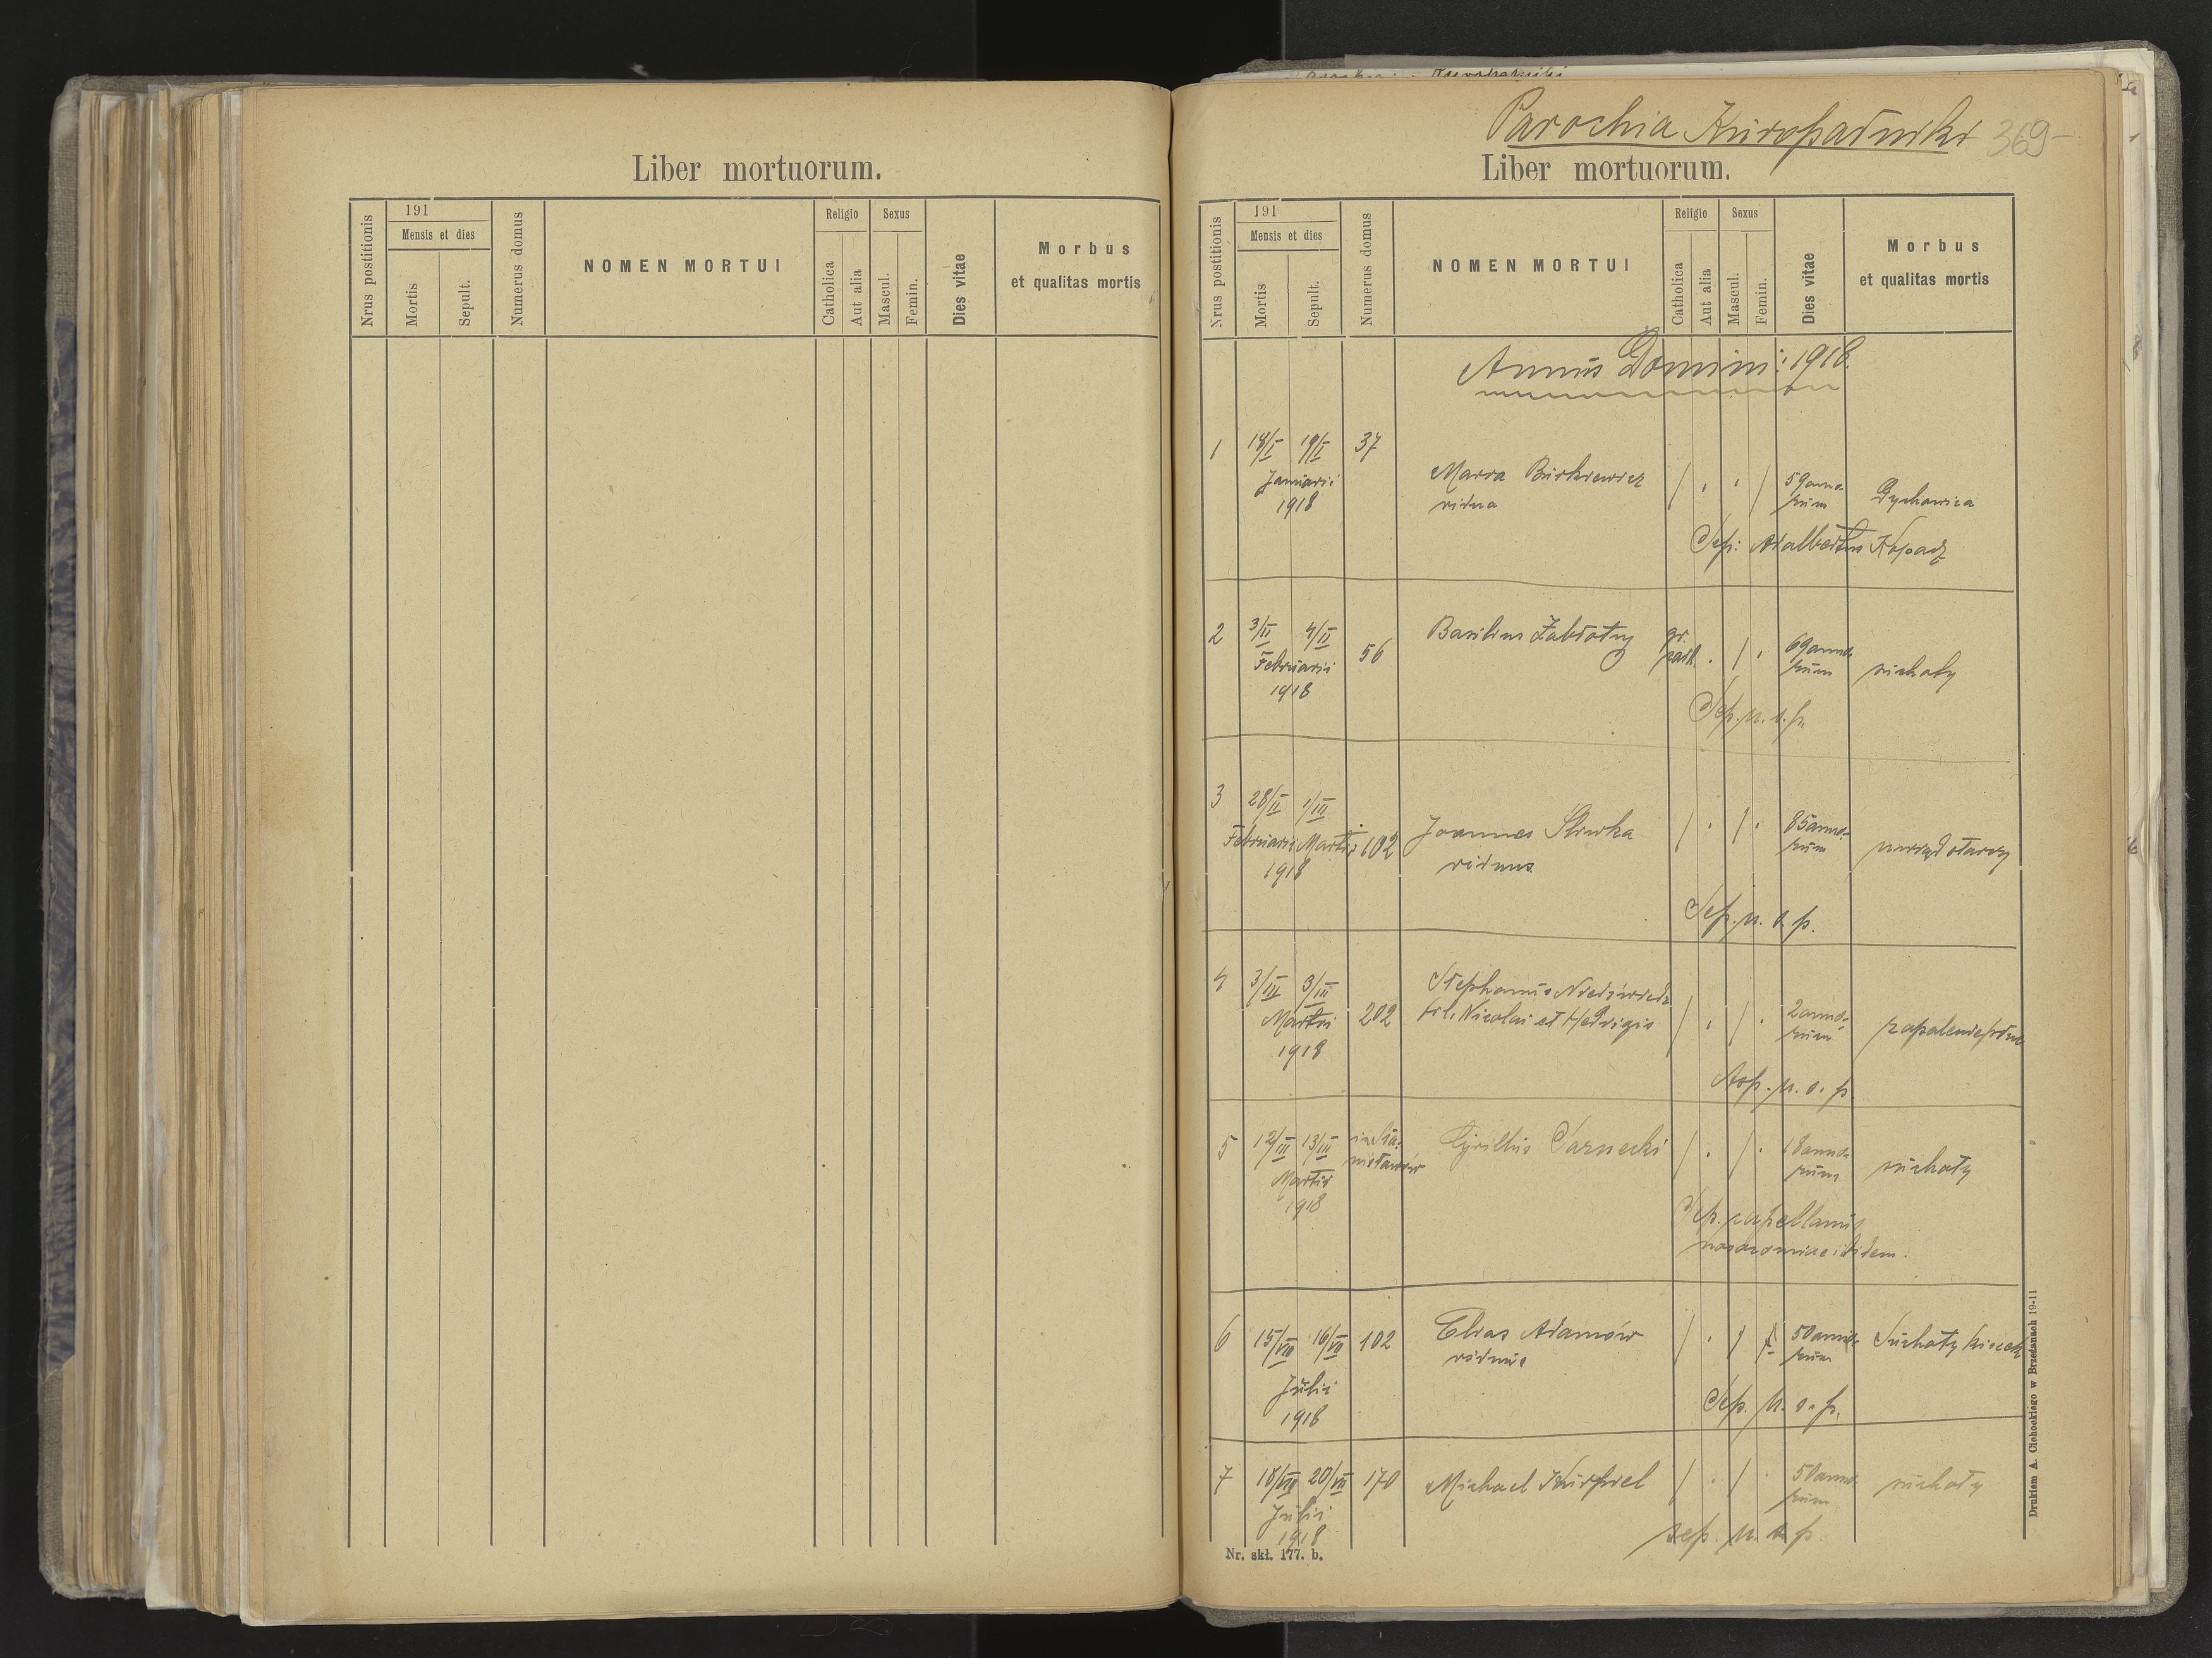 Liber mortuorum.
Nrus postitionis
191
Mensis et dies
Mortis
Sepult.
Numerus domus
NOMEN MORTUI
Religio
Catholica
Aut alia
Sexus
Mascul.
Femin.
Dies vitae
Morbus
et qualitas mortis
Parochia Kuropatniki 369
Liber mortuorum.
Nrus postitionis
191
Mensis et dies
Mortis
Sepult.
Numerus domus
NOMEN MORTUI
Religio
Catholica
Aut alia
Sexus
Mascul.
Femin.
Dies vitae
Morbus
et qualitas mortis
Annus Domini: 1918.
1 18/I 19/I 37
Januarii
1918
Maria Burkiewicz
vidua
59 anno-
rum
Dychawica
Sep: Adalbertus
2 3/II 4/II 56
Februarii
1918
Basilius Zabłotny
gr.
cath.
69 anno-
rum
suchoty
Sep. p. s. p.
3 28/II 1/III 102
Februarii Martii
1918
Joannes Śliwka
viduus
85 anno-
rum
uwiąd starczy
Sep. p. s. p.
4 3/III 3/III 202
Martii
1918
Stephanus Niedźwiedź
fil. Nicolai et Hedvigis
2 anno-
rum
zapalenie płuc
Sep. p. s. p.
5 12/III 13/III in Sta-
nisławów
Martii
1918
Cyrillus Czarnecki
18 anno-
rum
suchoty
Sep. capellanus
nosocomiae ibidem.
6 15/VII 16/VII 102
Julii
1918
Elias Adamów
viduus
50 anno-
rum
Suchoty kiszek
Sep. p. s. p.
7 18/VII 20/VII 170
Julii
1918
Michael Kurpiel
50 anno-
rum
suchoty
sep. p. s. p.
Nr. skł. 177. b.
Drukiem A. Cichockiego w Brzeżanach 19-11